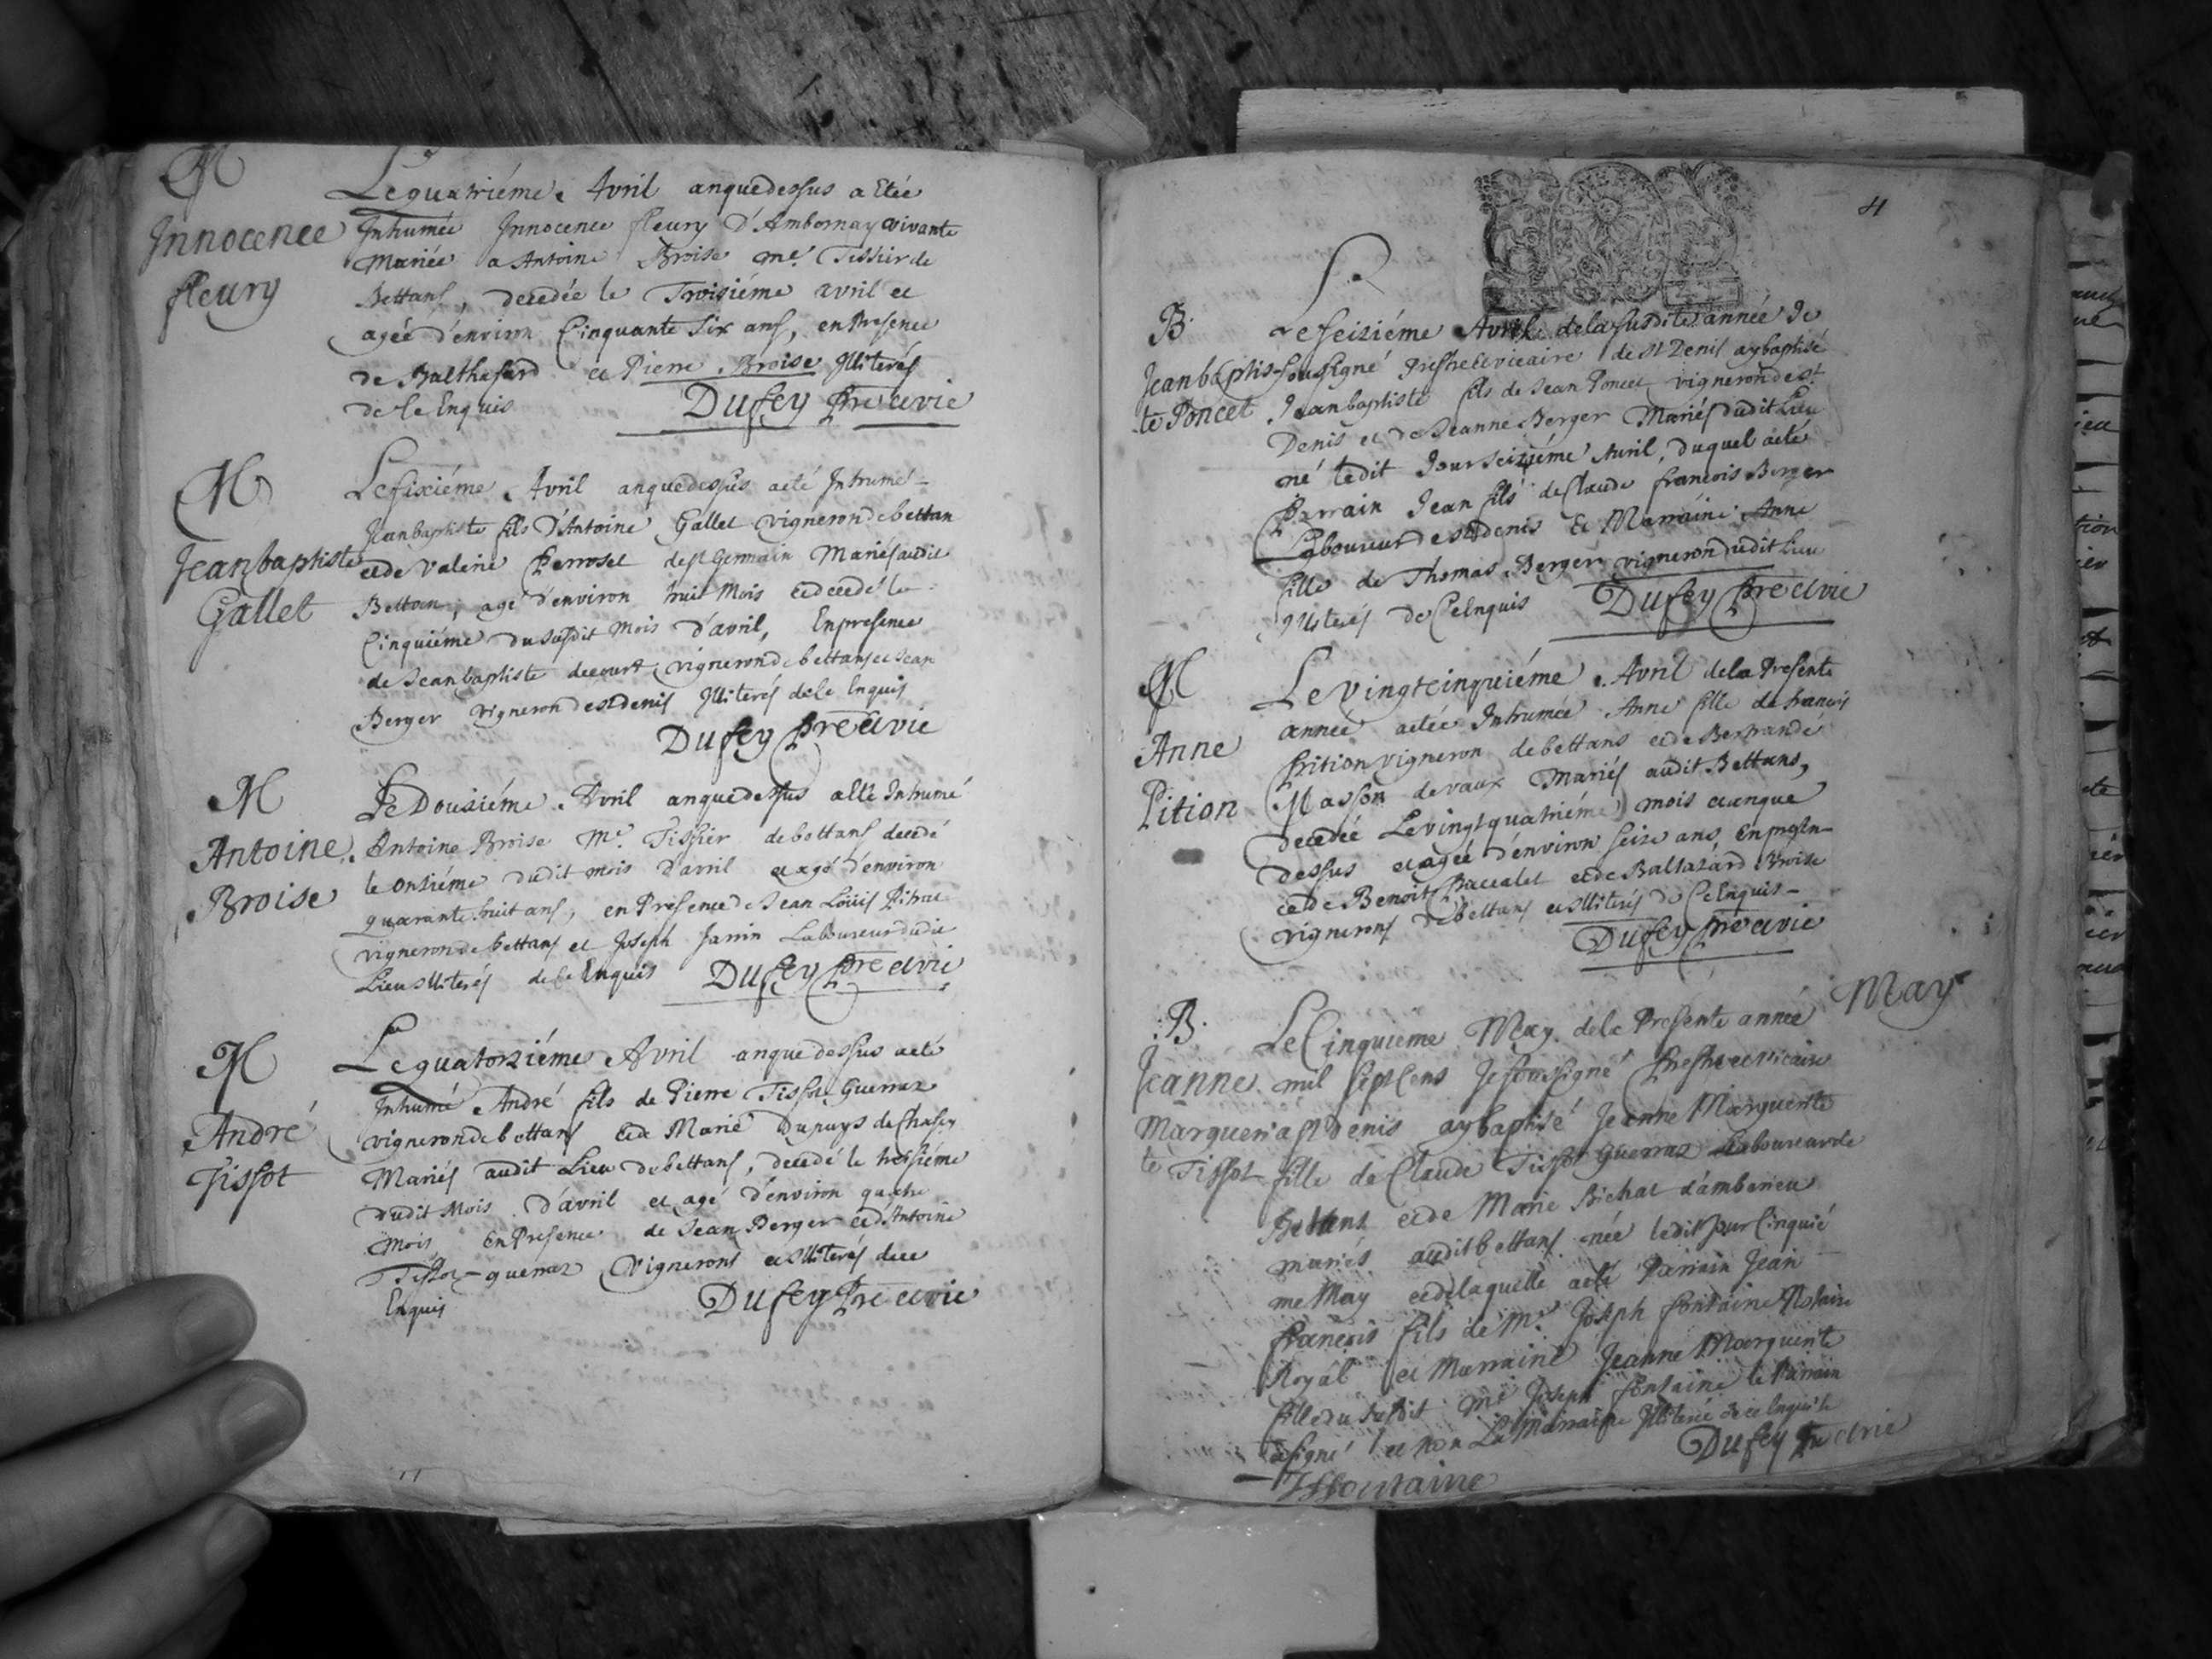 M
Innocence
fleury
Le quatriéme Avril anquedessus a Etée
Inhumée Innocence fleury D'Ambornay vivante
Mariée a Antoine Broise me. Tissier de
Bettans, decedée le Troisiéme avril et
agée d'environ Cinquante Six ans, en Presence
de Balthasard et Pierre Broise Illiterés
de ce Enquis
Dufey pre et vic
M
Jeanbaptiste
Gallet
Le sixiéme Avril anquedessus aeté Inhumé
Jeanbaptiste fils D'Antoine Gallet vigneron de bettan
et de Valerie Perroset de st Germain Mariés audit
Bettan, agé d'environ huit Mois et decedé le
Cinquiéme du susdit Mois d'avril, En presence
de Jeanbaptiste decourt vigneron de bettans et Jean
Berger vigneron de st denis Illiterés de ce Enquis
Dufey pre et vic
M
Antoine
Broise
Le Dousiéme Avril anquedessus a été Inhumé
Antoine Broise Me. Tissier de bettans decedé
le onsiéme dudit mois d'avril et agé d'environ
quarante huit ans, en Presence de Jean Louis
vigneron de bettans et Joseph Janin Laboureur dudit
Lieu Illiterés de ce Enquis Dufey pre et vic
M
André
Tissot
Le quatorsiéme Avril anquedessus aeté
Inhumé André fils de Pierre Tissot Guerraz
vigneron de bettans et de Marie Dupuys de Chasey
Mariés audit Lieu de bettans, decedé le treisiéme
dudit Mois d'avril et agé d'environ quatre
mois En Presence de Jean Berger et d'Antoine
Tissot guerraz Vignerons et Illiterés de ce
Enquis
Dufey Pre et vic
4
B
Jeanbaptis-
te Poncet
Le seiziéme Avril de la susdite année Je
soussigné Prestre et vicaire de St Denis ay baptisé
Jeanbaptiste fils de Jean Poncet vigneron de st
Denis et de Jeanne Berger Mariés dudit Lieu
né ledit Jour Seiziéme Avril, duquel aeté
Parrain Jean fils de Claude francois Berger
Laboureur de st denis Et Marraine Anne
fille de Thomas Berger vigneron dudit Lieu
Illiterés de Ce Enquis Dufey pre et vic
M
Anne
Pition
Le vingtcinquiéme Avril de la Presente
année aetée Inhumée Anne fille de francois
Pition vigneron de bettans et de Bertrande
Masson de vaux Mariés audit Bettans,
decedée Le vingtquatriéme mois et anque
dessus et agée d'environ seize ans, En presen-
ce de Benoit Baccalet et de Baltazard Broise
vignerons de bettans et Illiterés de Ce Enquis
Dufey pre et vic
May
B
Jeanne
Marguerit-
te Tissot
Le Cinquieme May de la Presente année
mil sept Cens Je soussigné Prestre et vicaire
a St denis ay baptisé Jeanne Marguerite
fille de Claude Tissot Guerraz Laboureur de
Bettans et de Marie Bichat d'amberieu
mariés audit bettans née ledit Jour Cinquié
me May et de laquelle aeté Parrain Jean
francois fils de Me. Joseph fontaine Notaire
Royál et Marraine Jeanne Marguerite
fille du susdit Me Joseph fontaine le Parrain
a signé et non La Marraine Illiterée de ce Enquise
Dufey pre et vic